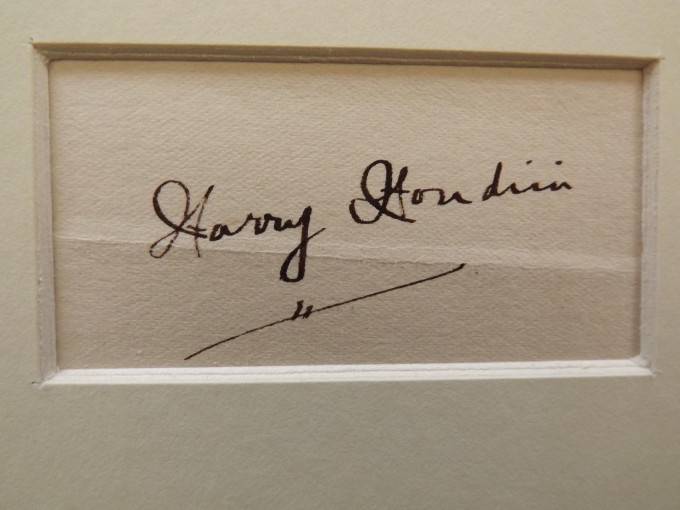 Harry Houdini